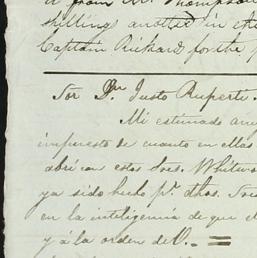 it from Mr. Thompson
shilling another in the
Captain Rickard for the
Sor Dn Justo Ruperti.
Mi estimado
impuesto de cuanto en ellas
abri con estos Sres. Whitw
ya sido hecho pr. dhos. Sres
en la inteligencia de que el
y á la orden de V. =